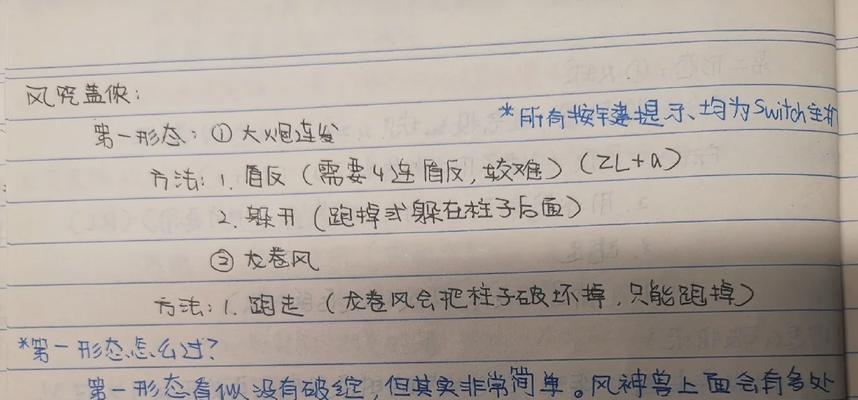 风咒盖侬：
*所有按键提示、均为Switch主机
第一形态：① 大炮连发
方法：1. 盾反（需要4连盾反，较难）（ZL+a）
2. 躲开（跑掉或躲在柱子后面）
② 龙卷风
方法：1. 跑走（龙卷风会把柱子破坏掉，只能跑掉）
*第一形态怎么过？
第一形态看似没有破绽，但其实非常简单。风神兽上面会有多处